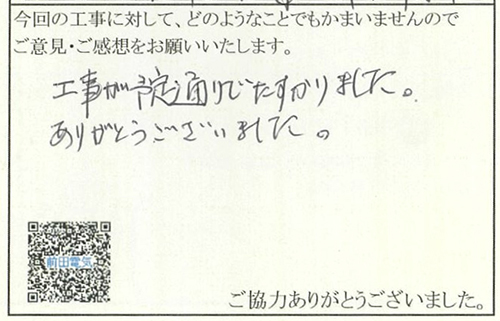 今回の工事に対して、どのようなことでもかまいませんので
ご意見・ご感想をお願いいたします。
工事が予定通りでたすかりました。
ありがとうございました。
前田電気
ご協力ありがとうございました。